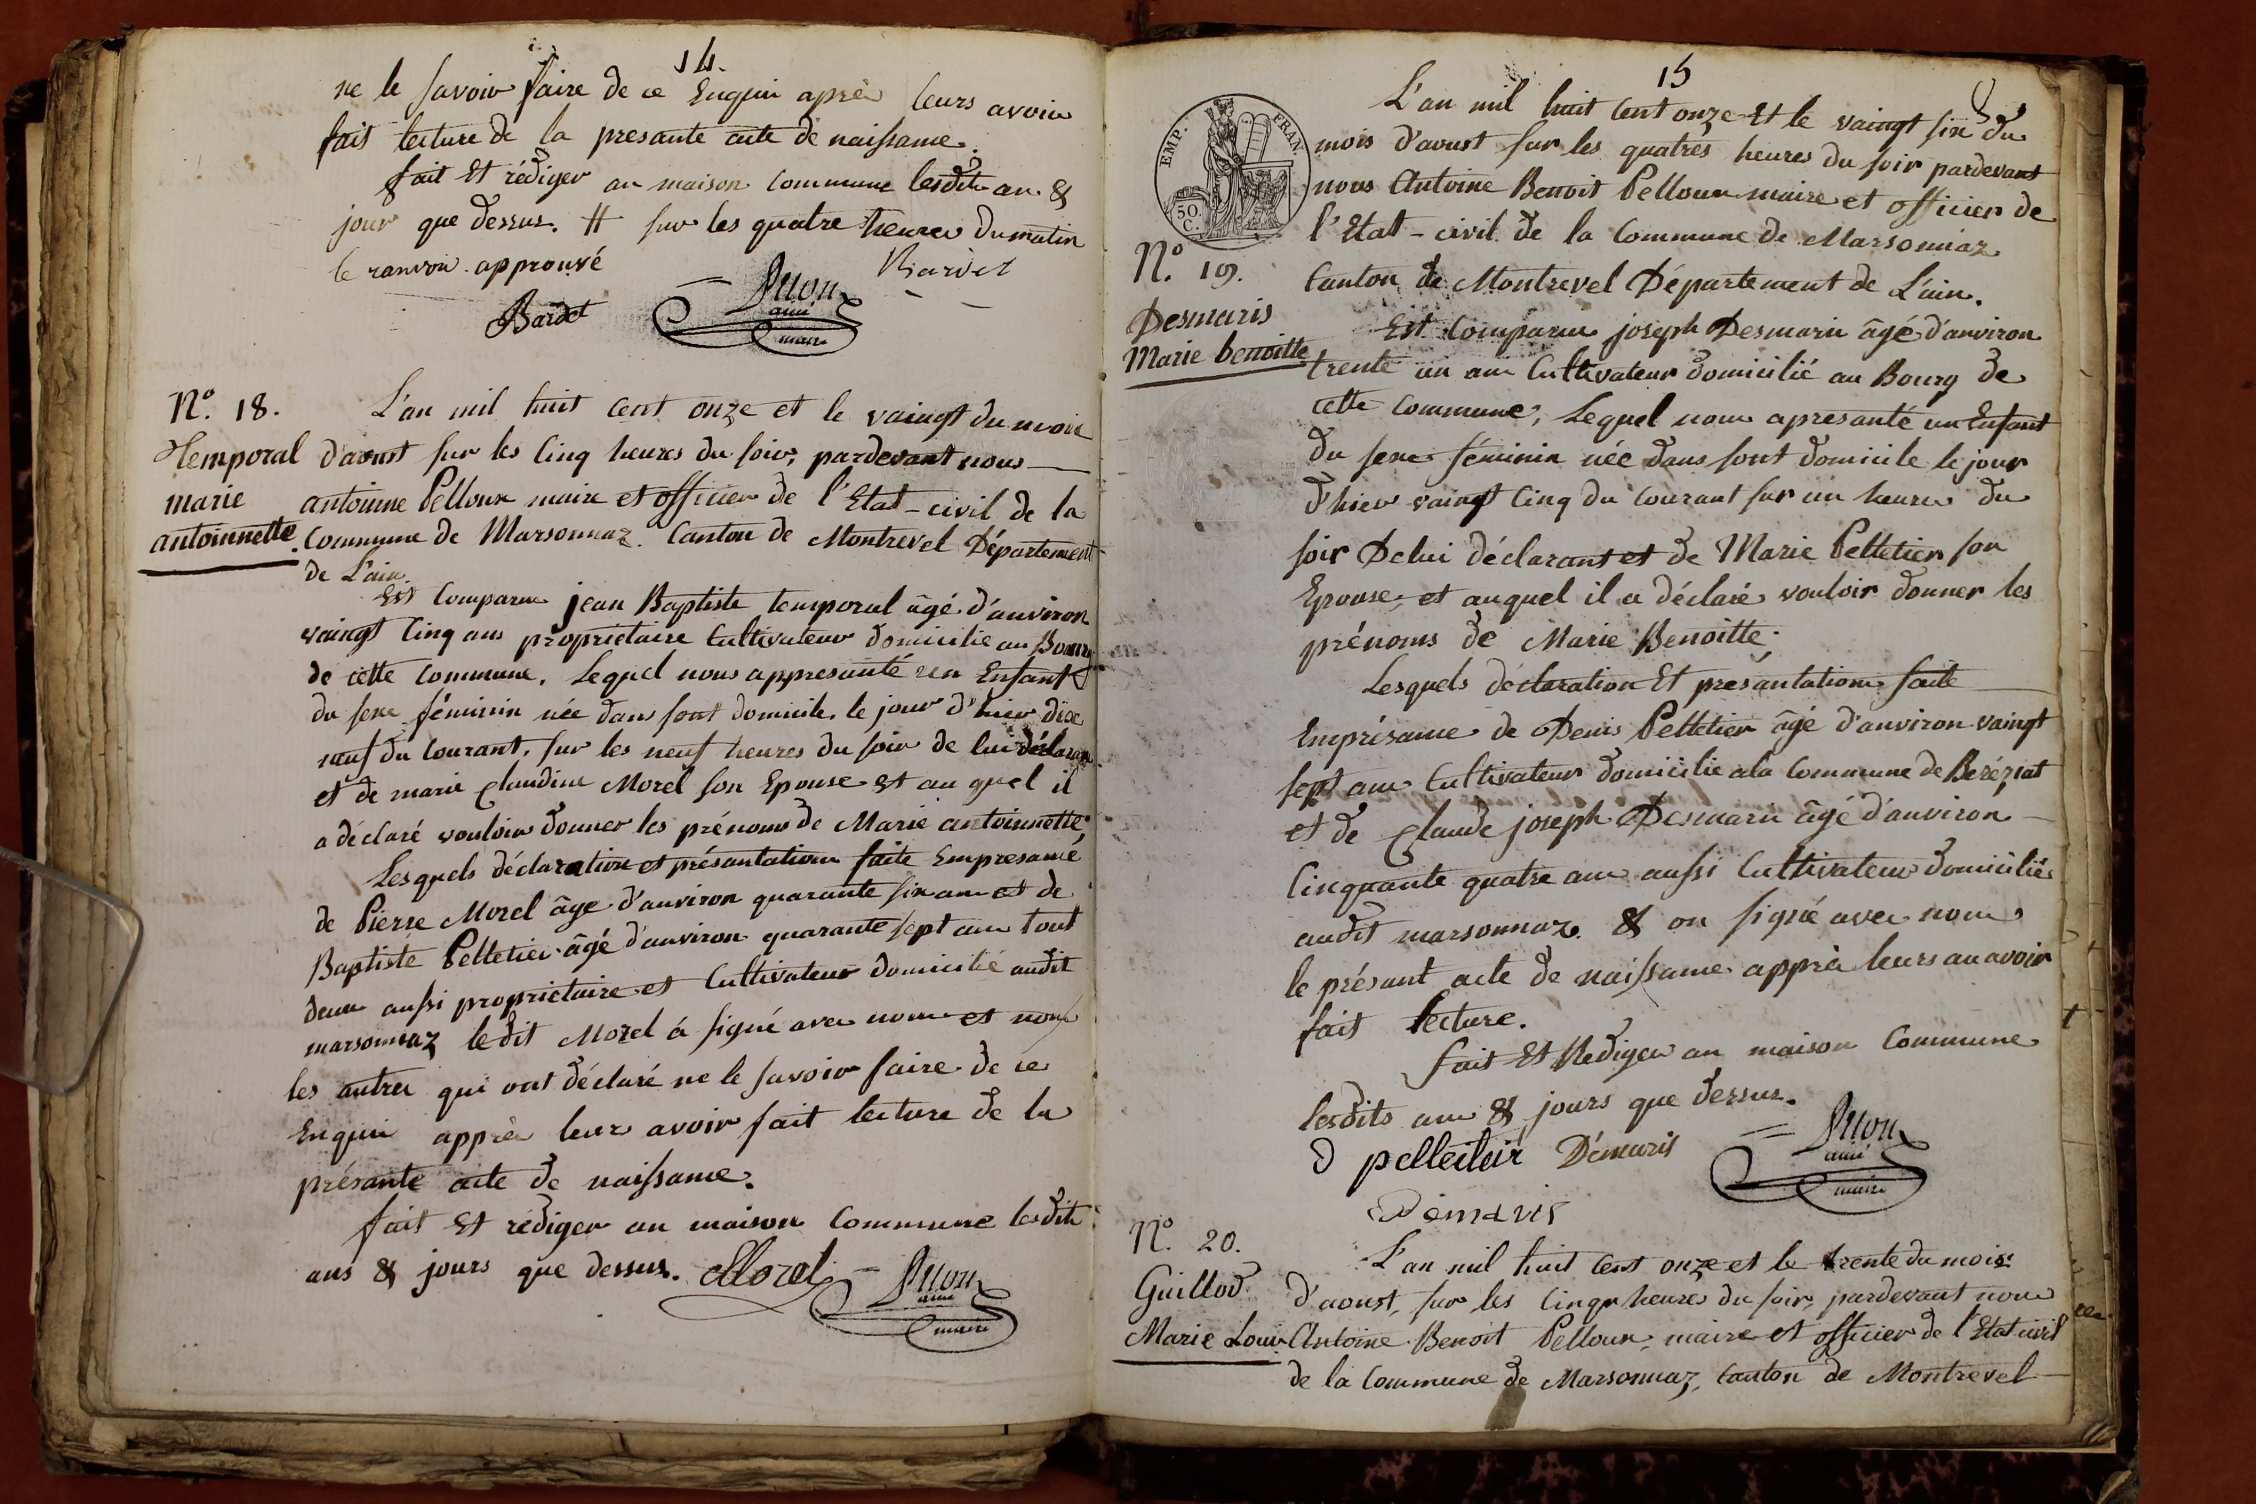 14.
ne le savoir faire de ce Enquis aprés leurs avoir
fait lecture de la presante acte de naissance.
fait Et rédiger au maison commune lesdits an &
jour que dessus. # sur les quatre heures du matin
le ranvoir approuvé
Bardet
Bardet
maire
N.º 18.
Temporal
marie
antoinnette.
L'an mil huit cent onze et le vaingt du mois
d'aoust sur les Cinq heures du soir, pardevant nous
antoinne Pelloux maire et officier de l'Etat-civil de la
Commune de Marsonnaz. Canton de Montrevel Département
de L'ain.
Est Comparu jean Baptiste temporal âgé d'anviron
vaingt Cinq ans proprietaire Cultivateur domicilié au Bourg
de cette Commune. Lequel nous appresanté un Enfant
du sexe féminin née dans sont domicile, le jour d'hier dixe
neuf du Courant, sur les neuf heures du soir de lui déclarant
et de marie Claudine Morel son Epouse et au quel il
a déclaré vouloir donner les prénoms de Marie antoinnette;
Lesquels déclaration et présantation faite Empresance
de Pierre Morel âge d'anviron quarante six ans et de
Baptiste Pelletier âgé d'anviron quarante sept ans tout
deux aussi proprietaire et Cultivateur domicilié audit
marsonnaz ledit Morel á signé avec nous et non
les autres qui ont déclaré ne le savoir faire de ce
Enquis apprès leur avoir fait lecture de la
présante acte de naissance.
fait Et rédiger au maison Commune lesdits
ans & jours que dessus. Morel
maire
15
EMP. FRAN.
50.
C.
N.º 19.
Desmaris
Marie benoitte
L'an mil huit Cent onze Et le vaingt six du
mois d'aoust sur les quatres heures du soir pardevant
nous Antoine Benoit Pelloux maire et officier de
l'Etat-civil de la Commune de Marsonnaz
Canton de Montrevel Département de L'ain.
Est Comparu joseph Desmaris âgé d'anviron
trente un ans Cultivateur domicilié au Bourg de
cette Commune, Lequel nous apresanté un Enfant
du sexe féminin née dans sont domicile le jour
d'hier vaingt Cinq du Courant sur un heures du
soir De lui déclarant et de Marie Pelletier son
Epouse, et auquel il a déclaré vouloir donner les
prénoms de Marie Benoitte;
Lesquels déclaration Et présantation faite
Emprésance de Denis Pelletier âgé d'anviron vaingt
sept ans Cultivateur domicilié a la Commune de Beréziat
et de Claude joseph Desmaris âgé d'anviron
Cinquante quatre ans aussi Cultivateur domicilié
audit marsonnaz. & on signé avec nous
le présant acte de naissance apprès leurs an avoir
fait lecture.
fait Et Rediger an maison Commune
lesdits ans & jours que dessus.
D pelletier Démaris
Demaris
maire
N.º 20.
Guillod
Marie Louise
L'an mil huit Cent onze et le trente du mois
d'aoust, sur les Cinqr heures du soir, pardevant nous
Antoine Benoit Pelloux, maire et officier de l'Etat civil
de la Commune de Marsonnaz, Canton de Montrevel